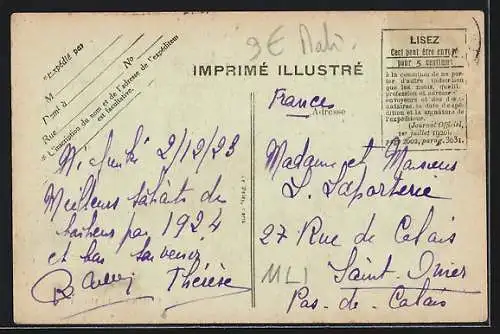 "Expédié par
M
Dᵐᵗ à
Rue
No
L'inscription du nom et de l'adresse de l'expéditeur
est facultative.
9€ Mali
IMPRIMÉ ILLUSTRÉ
LISEZ
Ceci peut être envoyé
pour 5 centimes
à la condition de ne por-
ter d'autre indication
que les nom, qualité,
profession et adresse
envoyeurs et des des-
nataires, la date de expé-
dition et la signature de
l'expéditeur.
(Journal Officiel,
1er juillet 1920)
parag. 3031.
France
Adresse
2/12/23
Meilleurs souhaits de
bonheur pour 1924
et bon souvenir
Thérèse
Madame et Monsieur
L. Laporterie
27 Rue de Calais
Saint-Omer
Pas-de-Calais
ML1